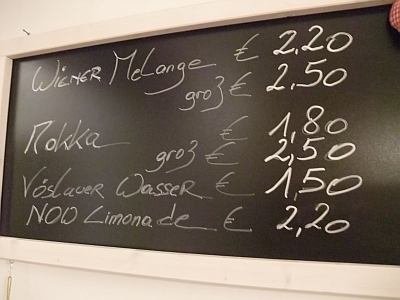 Wiener Melange € 2,20
groß € 2,50
Mokka € 1,80
groß € 2,50
Vöslauer Wasser € 1,50
NOW Limonade € 2,20